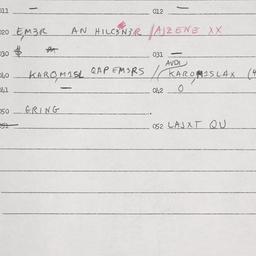 011 — 012 —
020 EM3R AN HILC3N3R /AJZENE XX
030 $ 031 —
AVDI
040 KAROM1SL QAP EM3RS / KAROM1SLAX (4
041 — 042 0
050 GRING
051 052 LAJXT QU